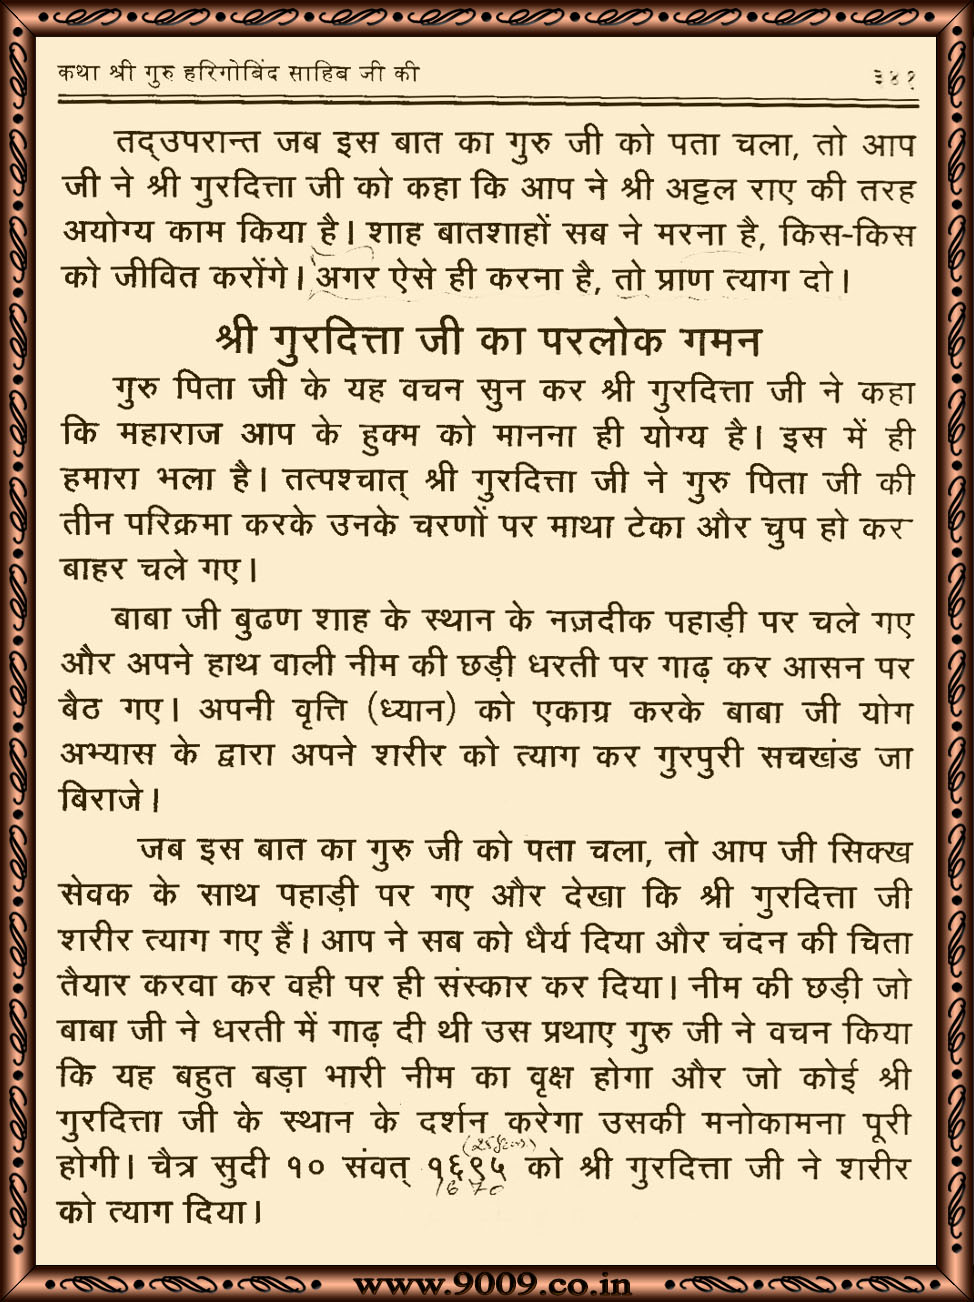 कथा श्री गुरु हरिगोबिंद साहिब जी की ३४१
तद्उपरान्त जब इस बात का गुरु जी को पता चला, तो आप
जी ने श्री गुरदित्ता जी को कहा कि आप ने श्री अट्टल राए की तरह
अयोग्य काम किया है। शाह बातशाहों सब ने मरना है, किस-किस
को जीवित करोंगे। अगर ऐसे ही करना है, तो प्राण त्याग दो।
श्री गुरदित्ता जी का परलोक गमन
गुरु पिता जी के यह वचन सुन कर श्री गुरदित्ता जी ने कहा
कि महाराज आप के हुक्म को मानना ही योग्य है। इस में ही
हमारा भला है। तत्पश्चात् श्री गुरदित्ता जी ने गुरु पिता जी की
तीन परिक्रमा करके उनके चरणों पर माथा टेका और चुप हो कर
बाहर चले गए।
बाबा जी बुढण शाह के स्थान के नज़दीक पहाड़ी पर चले गए
और अपने हाथ वाली नीम की छड़ी धरती पर गाढ़ कर आसन पर
बैठ गए। अपनी वृत्ति (ध्यान) को एकाग्र करके बाबा जी योग
अभ्यास के द्वारा अपने शरीर को त्याग कर गुरपुरी सचखंड जा
बिराजे।
जब इस बात का गुरु जी को पता चला, तो आप जी सिक्ख
सेवक के साथ पहाड़ी पर गए और देखा कि श्री गुरदित्ता जी
शरीर त्याग गए हैं। आप ने सब को धैर्य दिया और चंदन की चिता
तैयार करवा कर वही पर ही संस्कार कर दिया। नीम की छड़ी जो
बाबा जी ने धरती में गाढ़ दी थी उस प्रथाए गुरु जी ने वचन किया
कि यह बहुत बड़ा भारी नीम का वृक्ष होगा और जो कोई श्री
गुरदित्ता जी के स्थान के दर्शन करेगा उसकी मनोकामना पूरी
होगी। चैत्र सुदी १० संवत् १६९५ को श्री गुरदित्ता जी ने शरीर
1670
को त्याग दिया।
www.9009.co.in